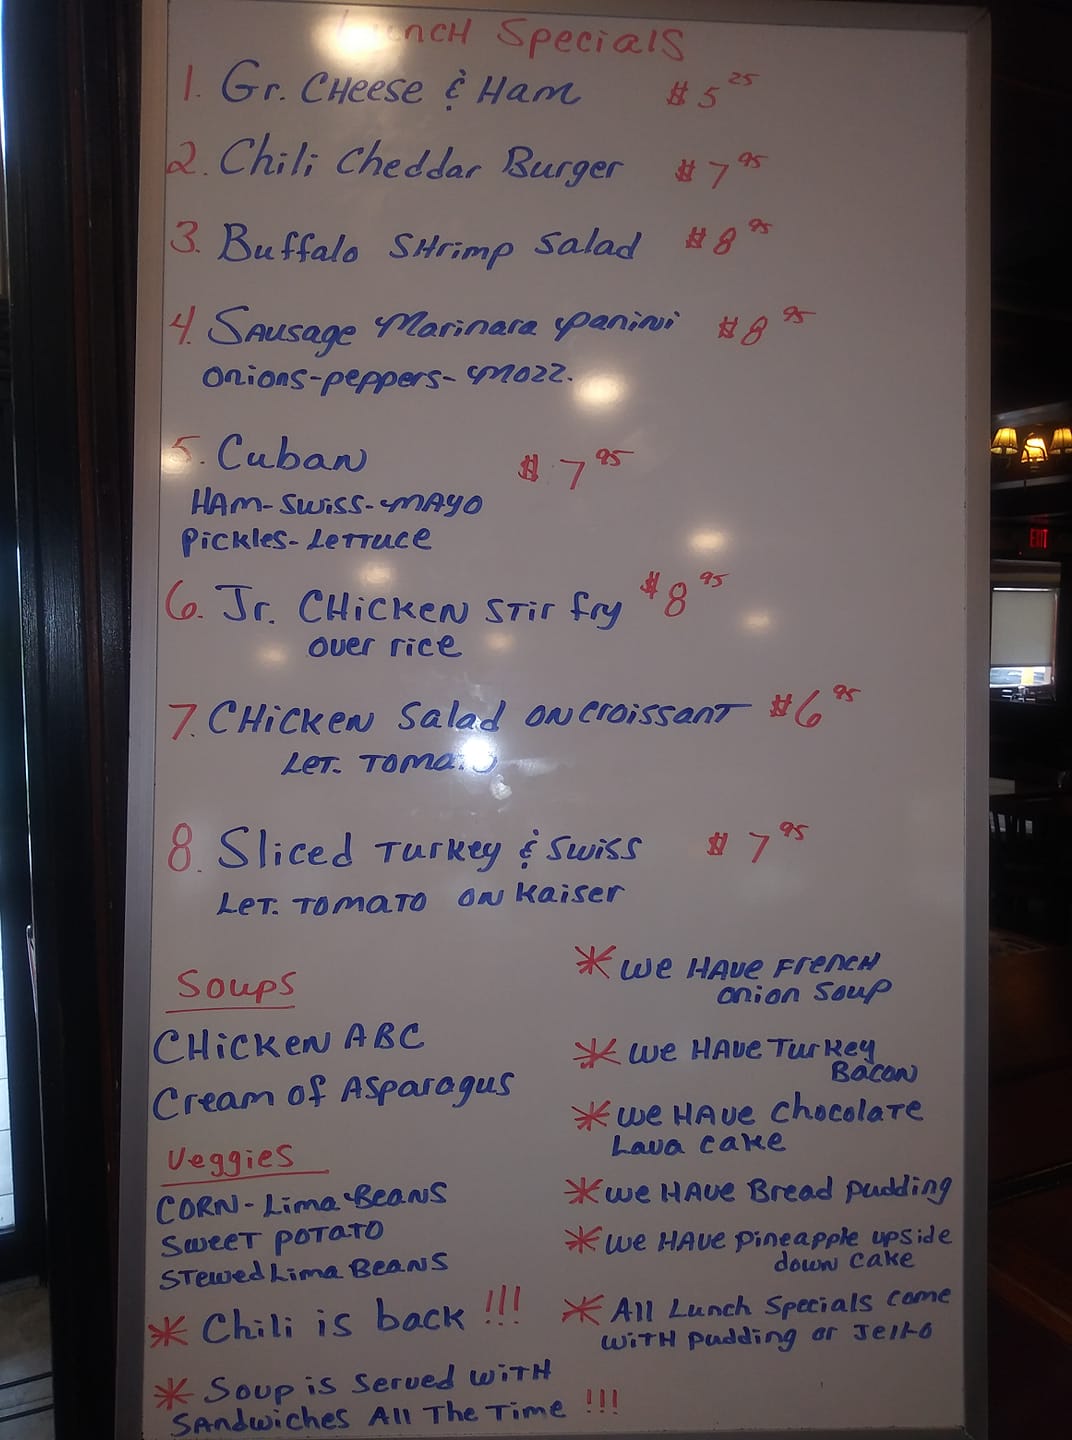 Lunch Specials
1. Gr. Cheese & Ham $5 25
2. Chili Cheddar Burger $7 95
3. Buffalo Shrimp Salad $8 95
4. Sausage Marinara Panini $8 95
onions-peppers-mozz.
5. Cuban $7 95
Ham-Swiss-Mayo
Pickles-Lettuce
6. Jr. Chicken Stir fry $8 95
over rice
7. Chicken Salad on Croissant $6 95
Let. Tomato
8. Sliced Turkey & Swiss $7 95
Let. Tomato on Kaiser
Soups
Chicken ABC
Cream of Asparagus
Veggies
Corn-Lima Beans
Sweet Potato
Stewed Lima Beans
* Chili is back !!!
* Soup is Served with
Sandwiches All The Time !!!
* We Have French
onion Soup
* We Have Turkey
Bacon
* We Have Chocolate
Lava Cake
* We Have Bread Pudding
* We Have Pineapple upside
down Cake
* All Lunch Specials come
with Pudding or Jello
EXIT